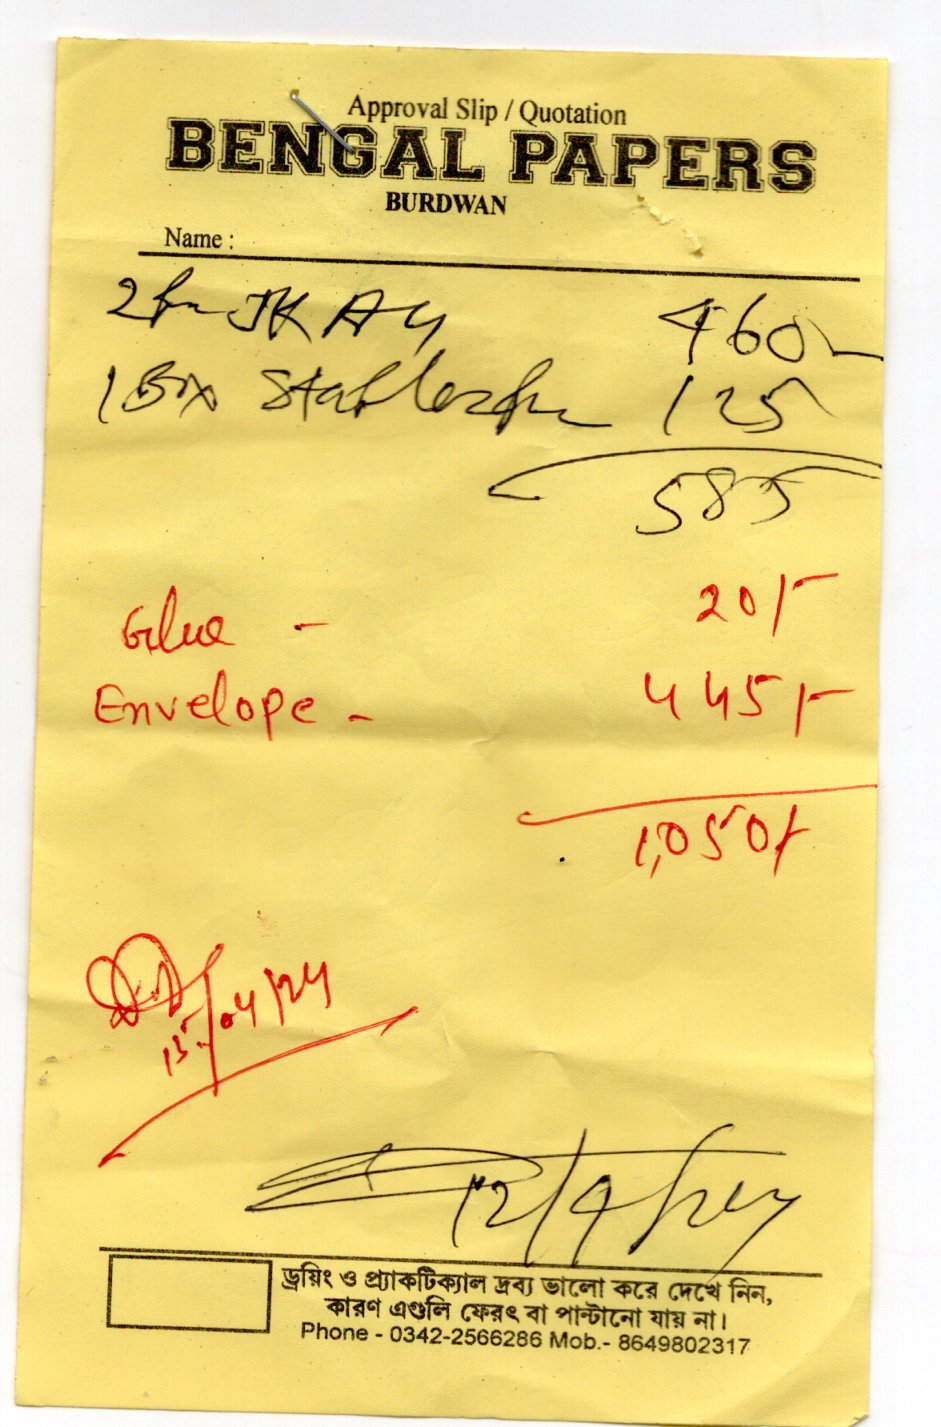 Approval Slip / Quotation
BENGAL PAPERS
BURDWAN
Name :
2 JK A4 460
1 Box Stapler 125
585
Glue - 20/-
Envelope - 445/-
1,050/-
15/04/24
12/4/24
ড্রয়িং ও প্র্যাকটিক্যাল দ্রব্য ভালো করে দেখে নিন,
কারণ এগুলি ফেরৎ বা পাল্টানো যায় না।
Phone - 0342-2566286 Mob.- 8649802317